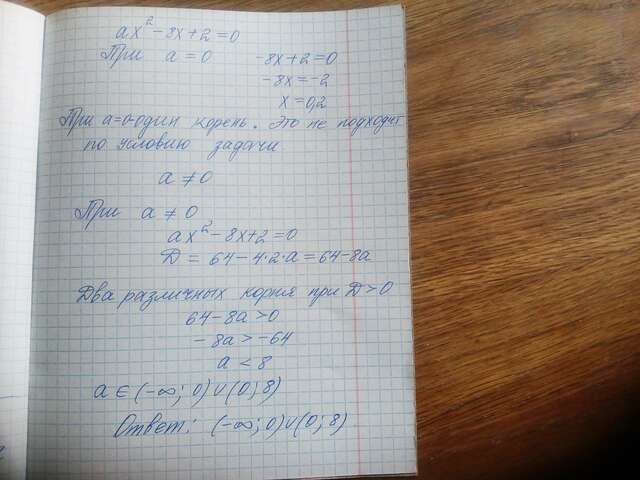 ax² - 8x + 2 = 0
При a = 0 -8x + 2 = 0
-8x = -2
x = 0,2
При a = 0 - один корень. Это не подходит
по условию задачи
a ≠ 0
При a ≠ 0
ax² - 8x + 2 = 0
D = 64 - 4·2·a = 64 - 8a
Два различных корня при D > 0
64 - 8a > 0
- 8a > -64
a < 8
a ∈ (-∞; 0) ∪ (0; 8)
Ответ: (-∞; 0) ∪ (0; 8)